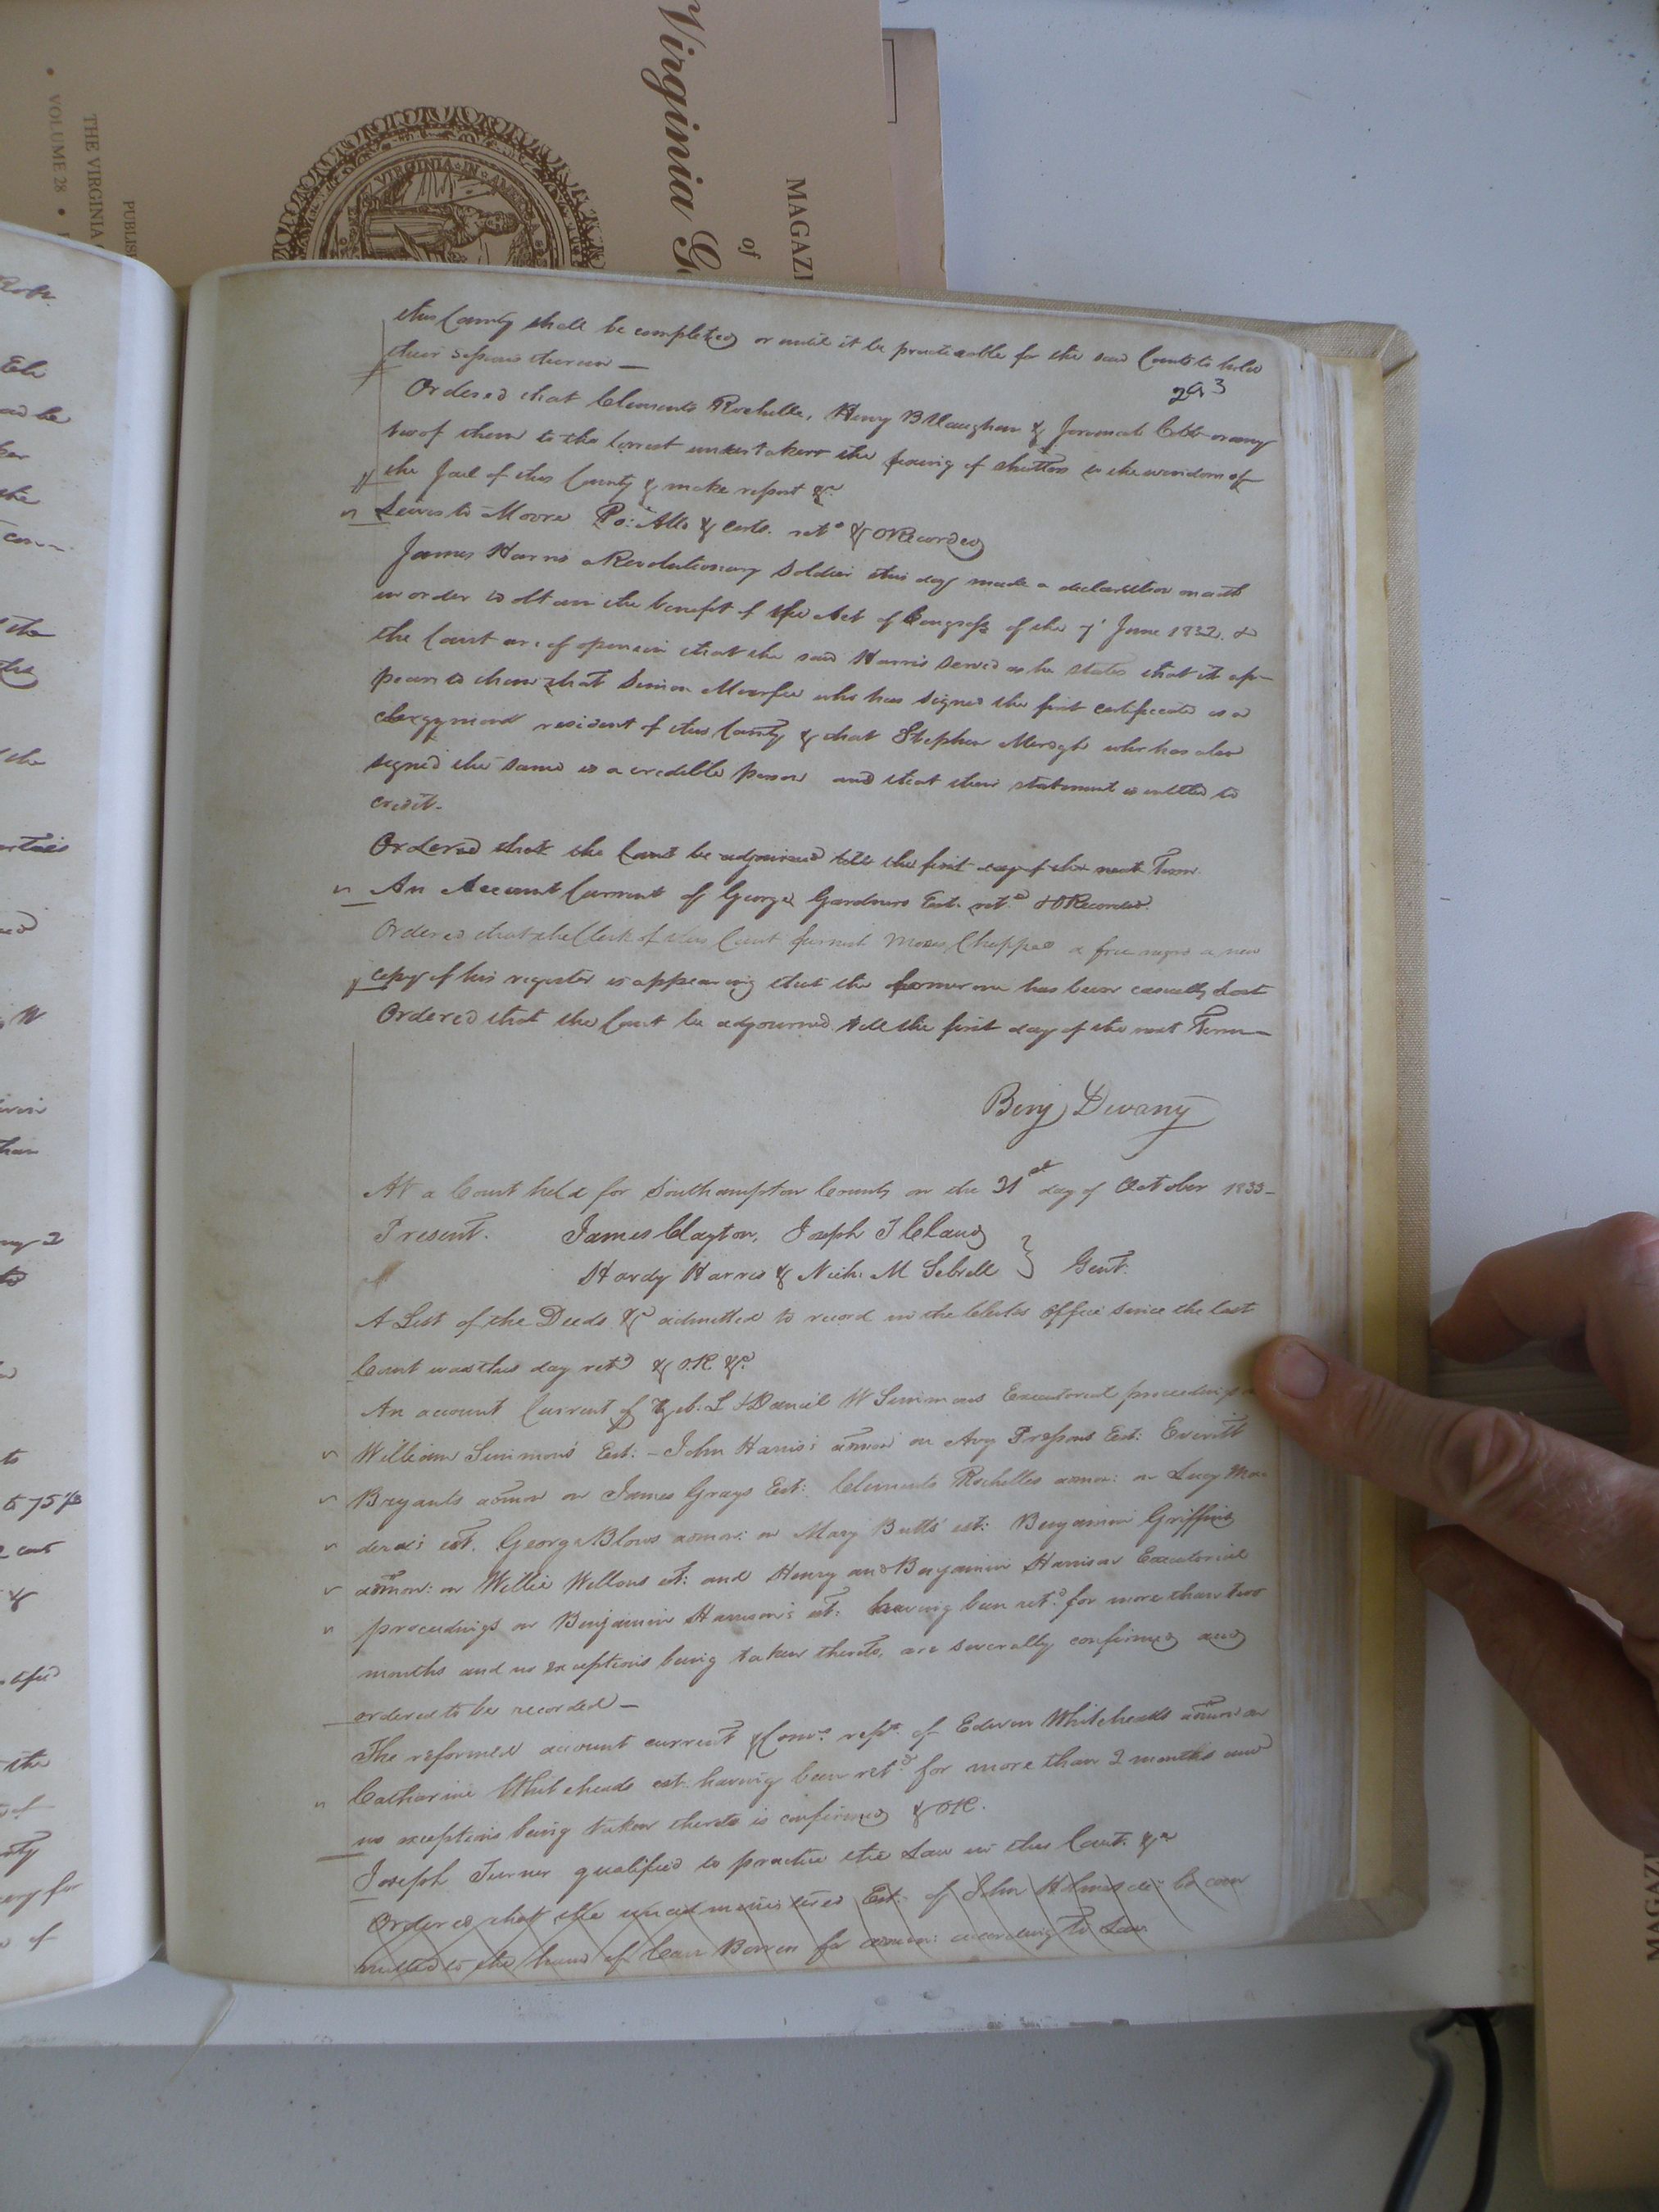 Virginia G
MAGAZI
of
PUBLIS
THE VIRGINIA
VOLUME 28
VIRGINIA IN
this County shall be completed or until it be practicable for the said Courts to hold
their sessions therein —
293
Ordered that Clements Rochelle, Henry B Vaughan & Jeremiah Cobb or any
two of them to the lowest undertaker the fixing of shutters to the windows of
the Jail of this County & make report &c
Lewis to Moore Po: Atto & certe. retd & ORecorded
James Harris a Revolutionary Soldier this day made a declaration on oath
in order to obtain the benefit of the Act of Congress of the 7' June 1832. &
the Court are of opinion that the said Harris served as he states that it ap-
pears to them that Simon Murfee who has signed the first certificate is a
clergyman resident of this County & that Stephen who has also
signed the same is a credible person and that their statement is entitled to
credit.
Ordered that the Court be adjourned till the first day of the next Term.
An Account Current of George Gardners Est. retd & ORecorded.
Ordered that the Clerk of this Court furnish Moses Chappel a free negro a new
copy of his register it appearing that the former one has been casually lost
Ordered that the Court be adjourned till the first day of the next Term —
Benj Devany
At a Court held for Southampton County on the 21st day of October 1833 -
Present. James Clayton, Joseph T Claud
Hardy Harris & Nich: M Sebrell } Gent.
A List of the Deeds &c admitted to record in the Clerks Office since the last
Court was this day retd & O.R &c
An account Current of Zeb: L & Daniel W Simmons Executorial proceedings
William Simmons' Est: - John Harris's admon on Avy Pressons Est: Everitt
Bryants admon on James Grays Est: Clements Rochelles admon: on Lucy
est. George Blows admon: on Mary Butts' est: Benjamin Griffins
admon: on Willie Wellons est: and Henry and Benjamin Harrison Executorial
proceedings on Benjamin Harrison's est: having been retd for more than two
months and no exceptions being taken thereto, are severally confirmed and
ordered to be recorded —
The reformed account current & Comrs rept. of Edwin Whiteheads admon on
Catharine Whiteheads est. having been retd for more than 2 months and
no exceptions being taken thereto is confirmed & OR.
Joseph Turner qualified to practice the Law in this Court. &c
Ordered that the unadministered Est. of John Holmes decd be com
mitted to the hand of Carr Bowers for admon: according to Law
MAGAZ